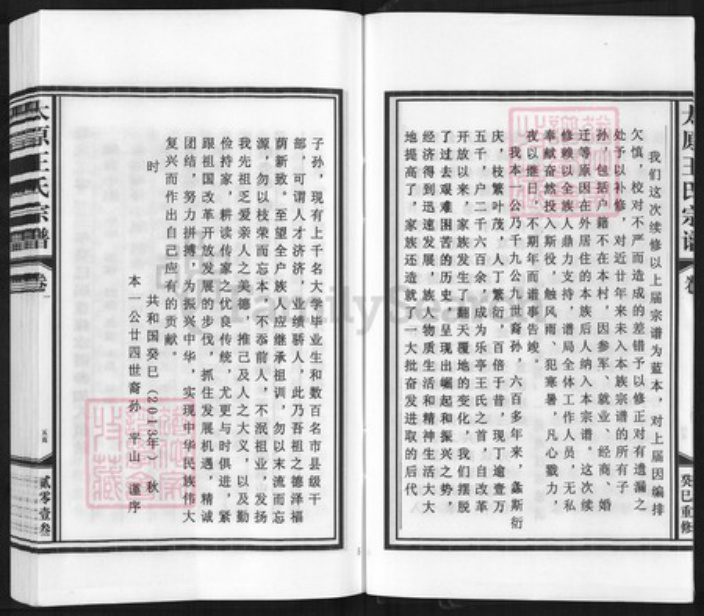 太原王氏宗谱
我们这次续修以上届宗谱为蓝本，对上届因编排
欠慎，校对不严而造成的差错予以修正对有遗漏之
处予以补修。对近廿年来未入本族宗谱的所有子
孙，包括户籍不在本村，因参军、就业、经商、婚
迁等原因在外居住的本族后人纳入本宗谱。这次续
修赖以全族人鼎力支持，谱局全体工作人员，无私
奉献奋然投入斯役，触风雨、犯寒暑，凡心戮力，
夜以继日，不期年而谱事告竣。
我本一公乃千九公九世裔孙，六百多年来，螽斯衍
庆，枝繁叶茂，人丁繁衍，百倍于昔，现丁逾壹万
五千，户二千六百余，成为乐亭王氏之首，自改革
开放以来，家族发生了翻天覆地的变化，我们摆脱
了过去艰难困苦的历史，呈现出崛起和振兴之势，
经济得到迅速发展，族人物质生活和精神生活大大
地提高了，家族还造就了一大批奋发进取的后代
癸巳重修
子孙，现有上千名大学毕业生和数百名市县级干
部，可谓人才济济，业绩骄人，此乃吾祖之德泽福
荫新致。至望全户族人应继承祖训，勿以末流而忘
源，勿以枝荣而忘本，不忝前人，不泯祖业，发扬
我先祖乏爱亲人之美德，推己及人之大义，以及勤
俭持家，耕读传家之优良传统，尤更与时俱进，紧
跟祖国改革开放发展的步伐，抓住发展机遇，精诚
团结，努力拼搏，为振兴中华，实现中华民族伟大
复兴而作出自己应有的贡献。
时
共和国癸巳（2013年）秋
本一公廿四世裔孙 平山 谨序
太原王氏宗谱
卷一
贰零壹叁
FamilySearch